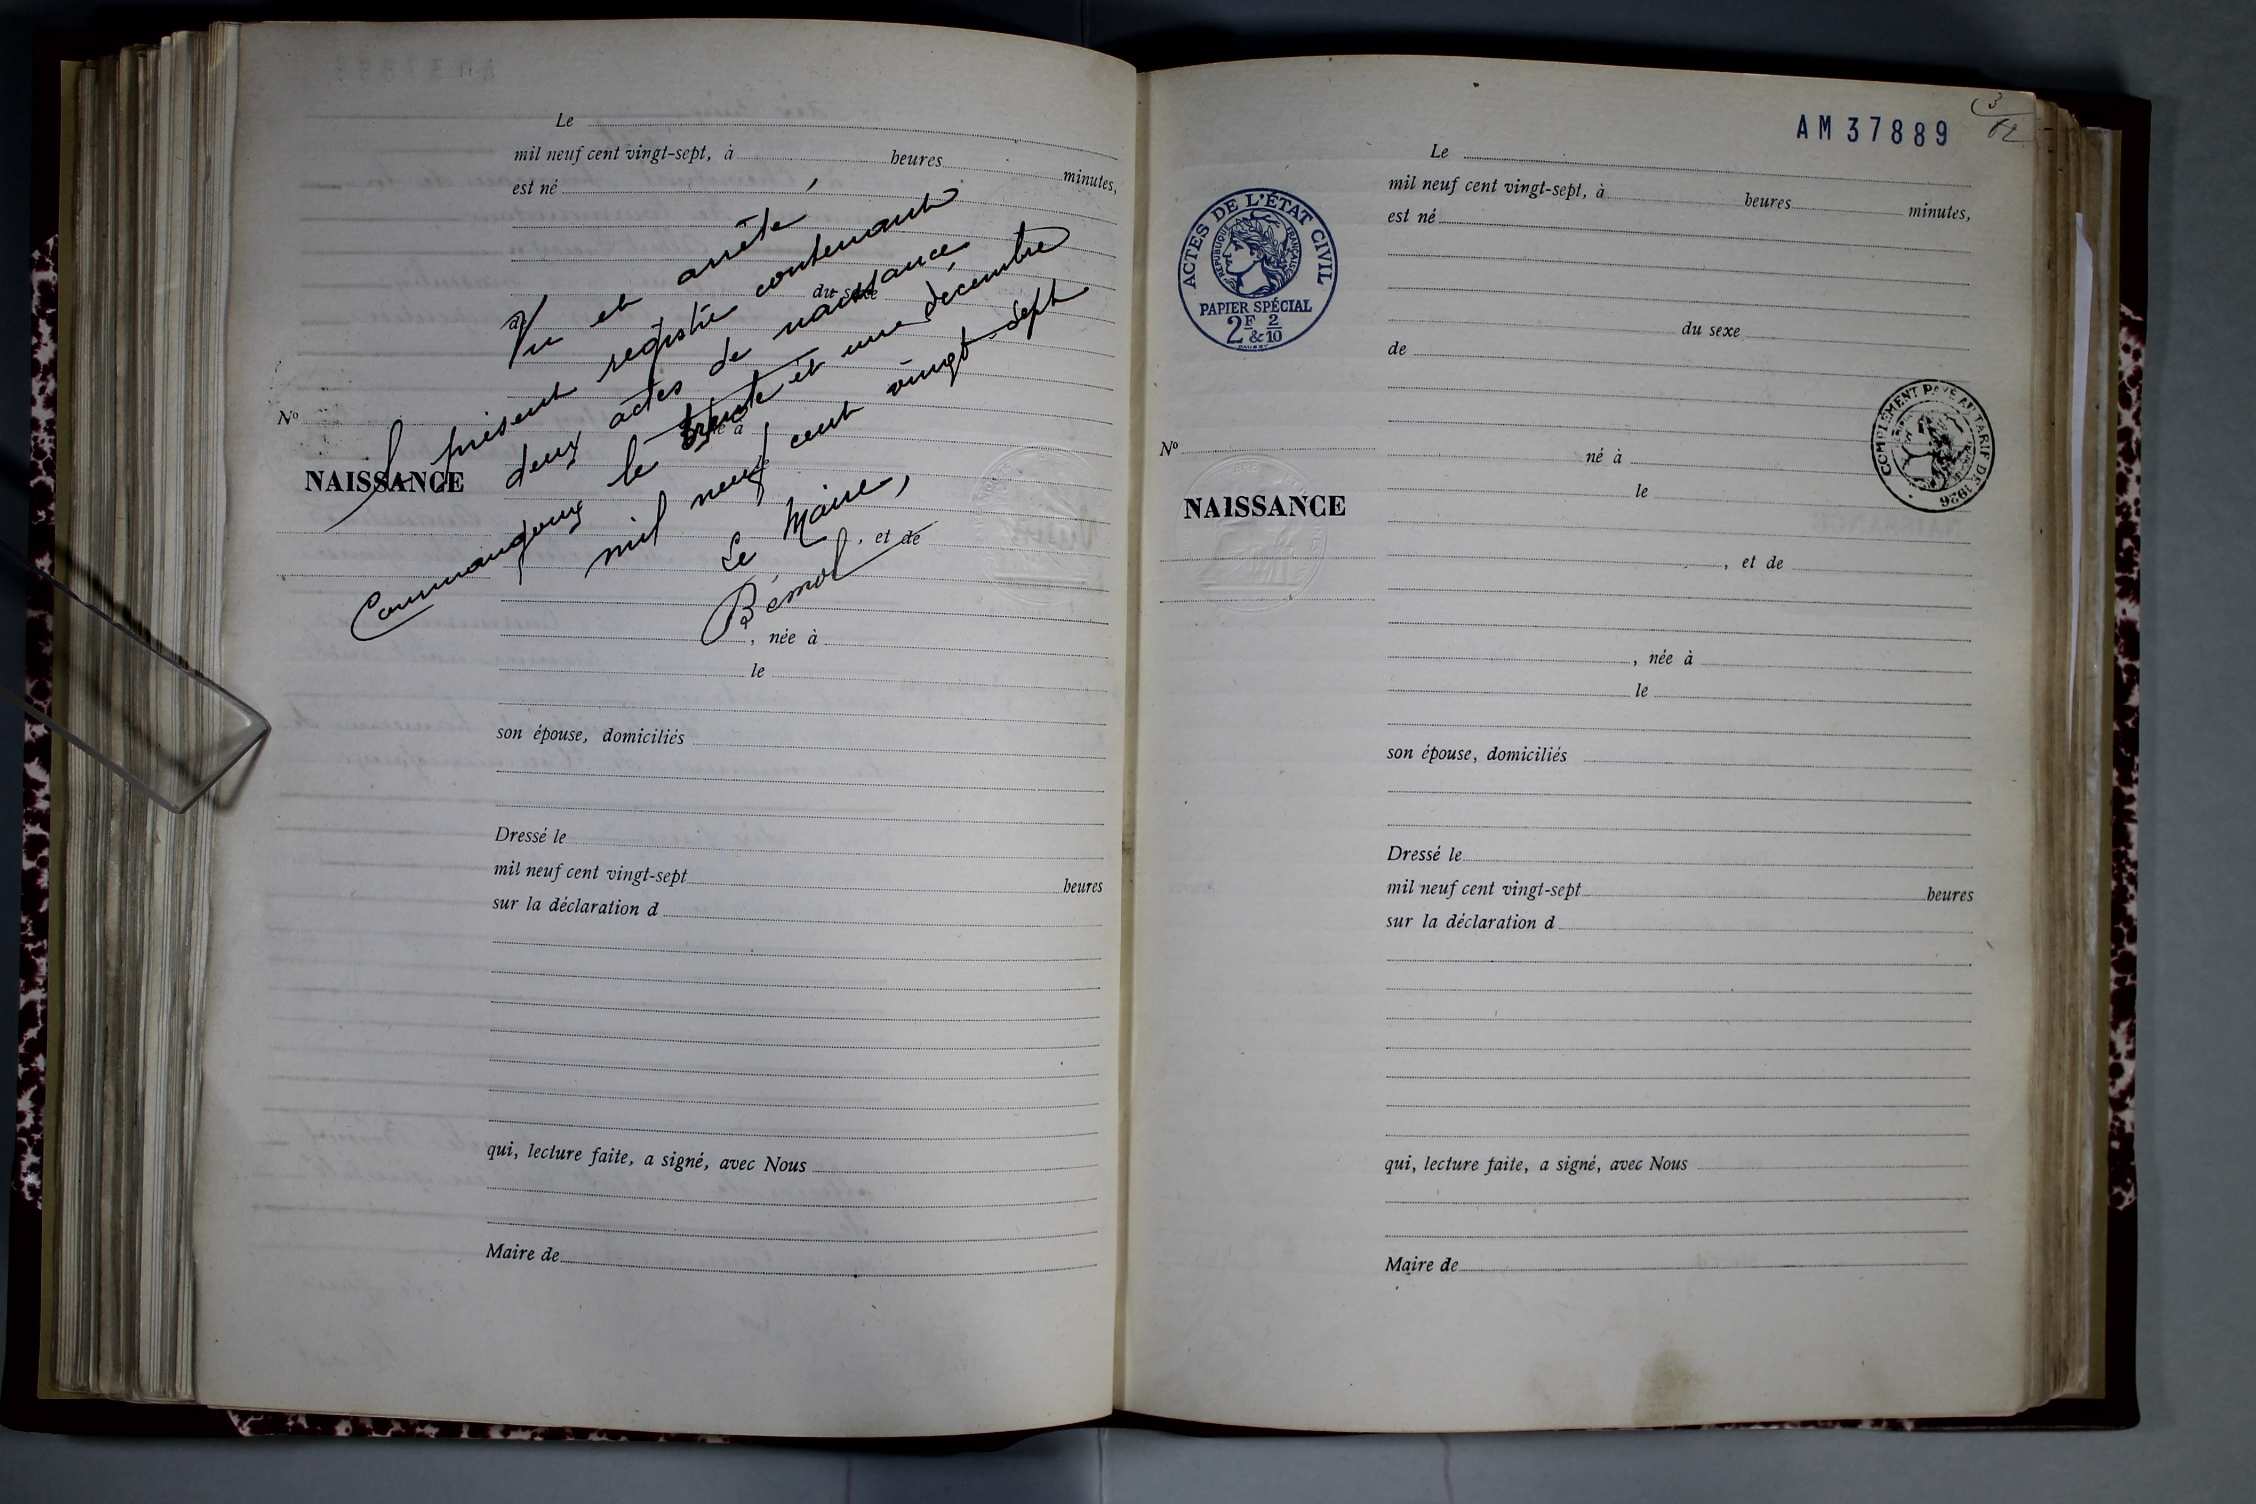 Le
mil neuf cent vingt-sept, à heures minutes,
est né
du sexe
de
Vu et arrêté
le présent registre contenant
deux actes de naissance
Commangoux le trente et un décembre
mil neuf cent vingt-sept
Le Maire,
Bémol
N°
né à
le
NAISSANCE
, et de
, née à
le
son épouse, domiciliés
Dressé le
mil neuf cent vingt-sept heures
sur la déclaration d
qui, lecture faite, a signé, avec Nous
Maire de
3
AM37889
Le
mil neuf cent vingt-sept, à heures minutes,
est né
ACTES DE L'ÉTAT CIVIL
RÉPUBLIQUE FRANÇAISE
PAPIER SPÉCIAL
2F & 2/10
du sexe
de
COMPLÉMENT PAYÉ AU TARIF DE 1926
N°
né à
le
NAISSANCE
, et de
, née à
le
son épouse, domiciliés
Dressé le
mil neuf cent vingt-sept heures
sur la déclaration d
qui, lecture faite, a signé, avec Nous
Maire de